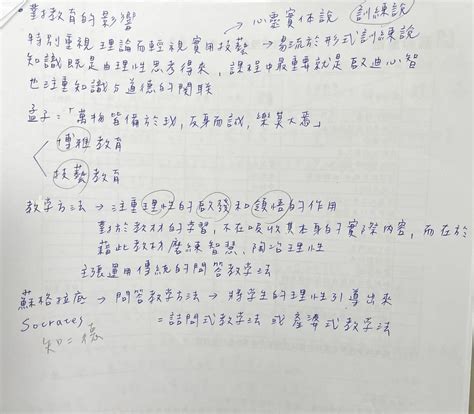 •對教育的影響 → 心靈實体說 訓練說
特別重視理論而輕視實用技藝 → 易流於形式訓練說
知識既是由理性思考得來，課程中最重要就是啟迪心智
也注重知識与道德的関联
孟子=「萬物皆備於我，反身而誠，樂莫大焉」
博雅教育
技藝教育
教学方法 → 注重理性的啟發和領悟的作用
對於教材的学習，不在吸收其本身的實際内容，而在於
藉此教材磨練智慧、陶冶理性
主張運用傳統的問答教学法
蘇格拉底 → 問答教学方法 → 將学生的理性引導出來
Socrates =詰問式教学法 或 產婆式教学法
知=德